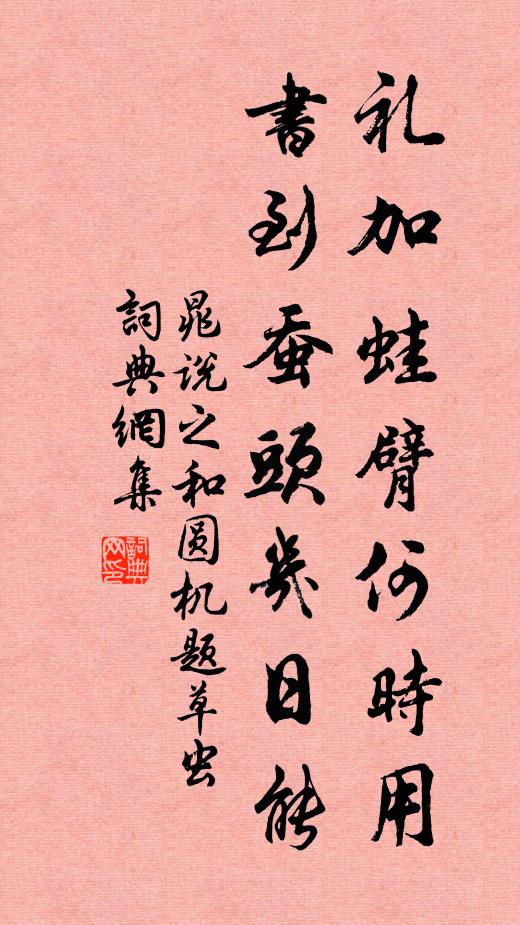 礼加蛙臂何時用
書到蚕頭幾日能
晁说之和圆机题草虫
詞典網集
詞典网印